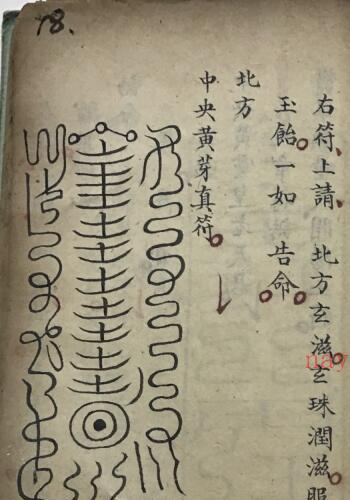 18.
右符上請北方玄滋玄珠潤滋
玉飴一如告命
北方
中央黄芽真符